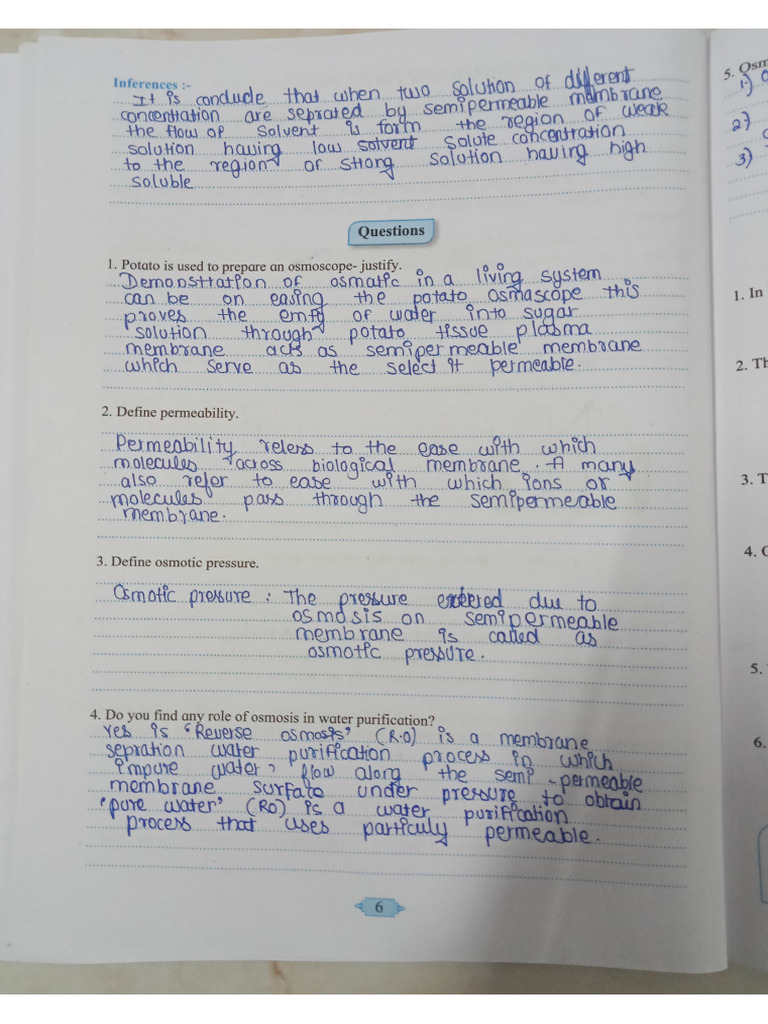 Inferences :-
It is conclude that when two solution of different
concentration are seprated by semipermeable membrane
the flow of solvent is form the region of weak
solution having low solvent solute concentration
to the region of strong solution having high
soluble
Questions
1. Potato is used to prepare an osmoscope- justify.
Demonstration of osmatic in a living system
can be on easing the potato osmascope this
proves the of water into sugar
solution through potato tissue plasma
membrane acts as semipermeable membrane
which serve as the select it permeable.
2. Define permeability.
Permeability refers to the ease with which
molecules across biological membrane. A many
also refer to ease with which ions or
molecules pass through the semipermeable
membrane.
3. Define osmotic pressure.
Osmotic pressure : The pressure due to
osmosis on semipermeable
membrane is called as
osmotic pressure.
4. Do you find any role of osmosis in water purification?
Yes is 'Reverse osmosis' (R.O) is a membrane
sepration water purification process in which
impure water, flow along the semi-permeable
membrane surfate under pressure to obtain
'pure water' (RO) is a water purification
process that uses particuly permeable.
6
5. Osm
1.)
2)
3)
1. In
2. Th
3. T
4.
5.
6.